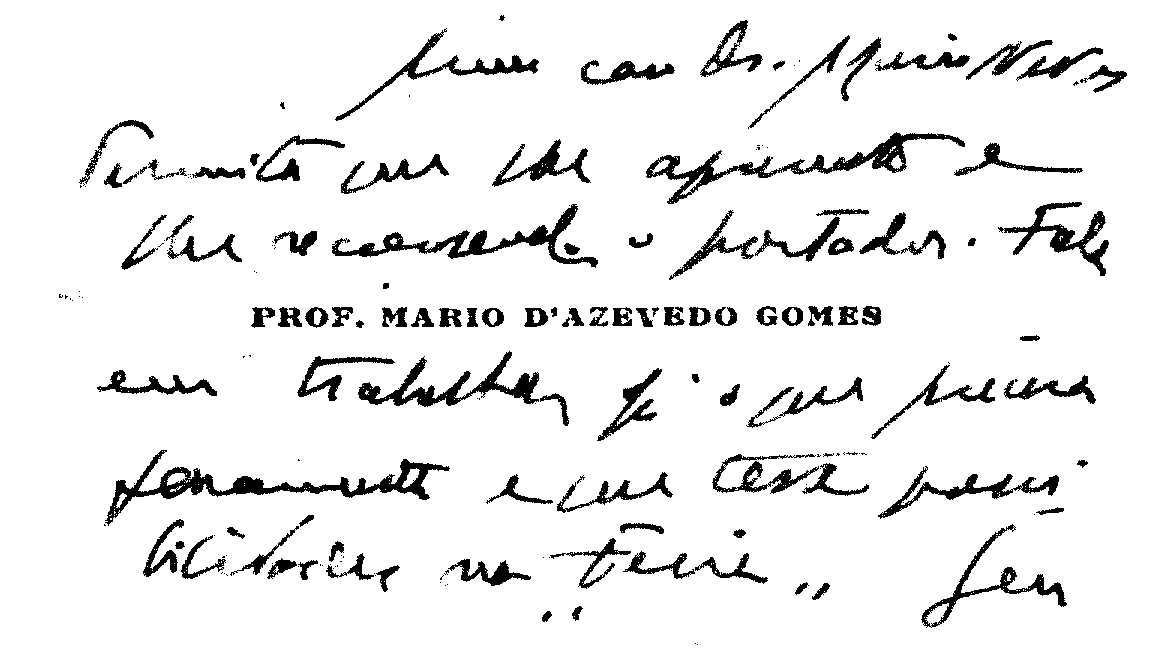 Meu caro Dr. Mario Neves
Permita que lhe apresente e
lhe recomende o portador. Fale
PROF. MARIO D'AZEVEDO GOMES
em trabalhar que é o que precisa
e que terá possi
bilidades na Feira,,